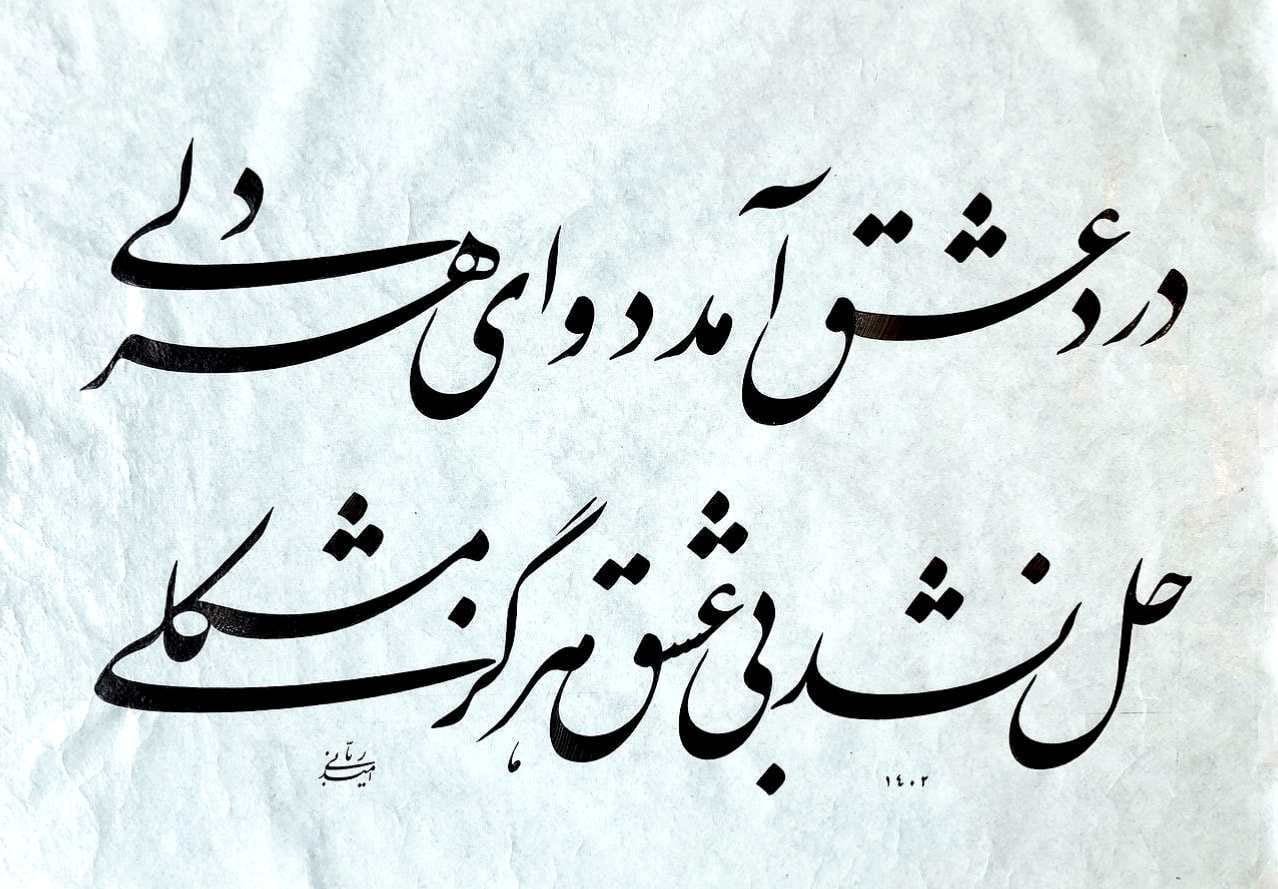 درد عشق آمد دوای هر دلی
حل نشد بی عشق هرگز مشکلی
۱۴۰۲
امید ربّانی